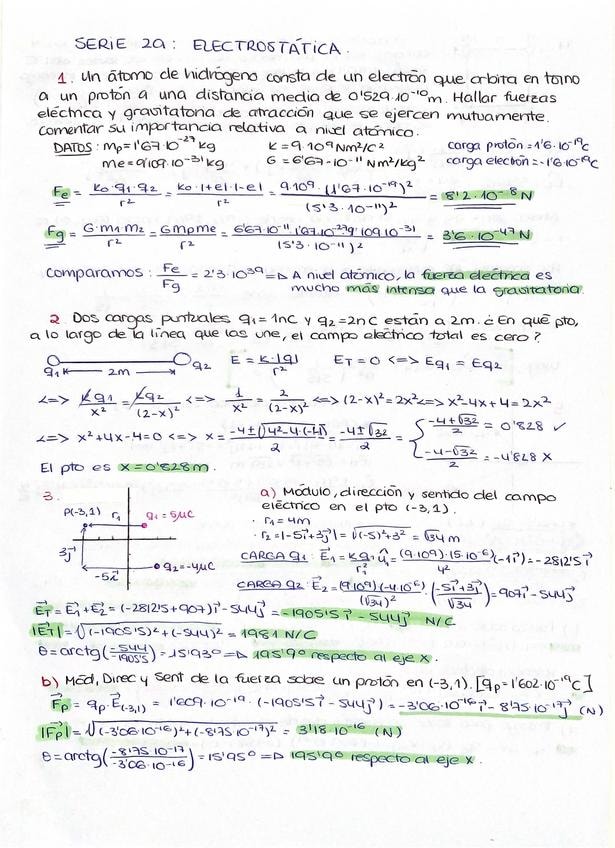 SERIE 2a: ELECTROSTÁTICA.
1. Un átomo de hidrógeno consta de un electrón que orbita en torno
a un protón a una distancia media de 0'529·10⁻¹⁰m. Hallar fuerzas
eléctrica y gravitatoria de atracción que se ejercen mutuamente.
comentar su importancia relativa a nivel atómico.
DATOS: mp=1'67·10⁻²⁷kg K=9·10⁹Nm²/C² carga protón=1'6·10⁻¹⁹C
me=9'109·10⁻³¹kg G=6'67·10⁻¹¹Nm²/kg² carga electrón=-1'6·10⁻¹⁹C
Fe = K0·q1·q2/r² = K0·|+e|·|-e|/r² = 9·10⁹·(1'67·10⁻¹⁹)²/(5'3·10⁻¹¹)² = 8'2·10⁻⁸N
Fg = G·m1·m2/r² = G·mp·me/r² = 6'67·10⁻¹¹·1'67·10⁻²⁷·9'109·10⁻³¹/(5'3·10⁻¹¹)² = 3'6·10⁻⁴⁷N
Comparamos: Fe/Fg = 2'3·10³⁹ => A nivel atómico, la fuerza eléctrica es
mucho más intensa que la gravitatoria.
2. Dos cargas puntuales q1=1nC y q2=2nC están a 2m. ¿En qué pto,
a lo largo de la línea que las une, el campo eléctrico total es cero?
q1 2m q2 E = K·|q|/r² ET=0 <=> Eq1=Eq2
<=> Kq1/x² = Kq2/(2-x)² <=> 1/x² = 2/(2-x)² <=> (2-x)²=2x² <=> x²-4x+4=2x²
<=> x²+4x-4=0 <=> x = -4±√(4²-4(-4))/2 = -4±√32/2 = { -4+√32/2 = 0'828 ✓
-4-√32/2 = -4'828 X
El pto es x=0'828m.
3. a) Módulo, dirección y sentido del campo
eléctrico en el pto (-3,1).
P(-3,1) r1 q1=5μC
· r1=4m
· r2=|-5i+3j|=√(-5)²+3²=√34 m
3j
-5i
q2=-4μC
CARGA q1: E1=Kq1/r1²·û1=(9·10⁹)·(5·10⁻⁶)/4²(-1i)=-2812'5i
CARGA q2: E2=(9·10⁹)(-4·10⁻⁶)/(√34)²·(-5i+3j/√34)=907i-544j
ET=E1+E2=(-2812'5+907)i-544j=-1905'5i-544j N/C
|ET|=√(-1905'5)²+(-544)²=1981 N/C
θ=arctg(-544/-1905'5)=15'93º => 195'9º respecto al eje x.
b) Mód, Direc y Sent de la fuerza sobre un protón en (-3,1). [qp=1'602·10⁻¹⁹C]
Fp=qp·E(-3,1)=1'609·10⁻¹⁹·(-1905'5i-544j)=-3'06·10⁻¹⁶i-8'75·10⁻¹⁷j (N)
|Fp|=√(-3'06·10⁻¹⁶)²+(-8'75·10⁻¹⁷)²=3'18·10⁻¹⁶ (N)
θ=arctg(-8'75·10⁻¹⁷/-3'06·10⁻¹⁶)=15'95º => 195'9º respecto al eje x.